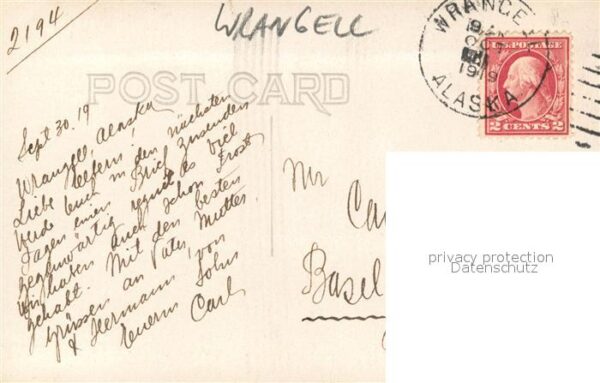 2194
WRANGELL
WRANGELL
1919
ALASKA
U.S. POSTAGE
2 CENTS 2
POST CARD
Sept 30. 19
Wrangell, Alaska
Liebe Eltern!
Werde Euch in den nächsten
Tagen einen Brief zusenden
gegenwärtig regnet es viel
wir haben auch schon Frost
gehabt. Mit den besten
Grüssen an Vater, Mutter
& Hermann, von
Euerm Sohn
Carl
Mr
Car
Basel
privacy protection
Datenschutz